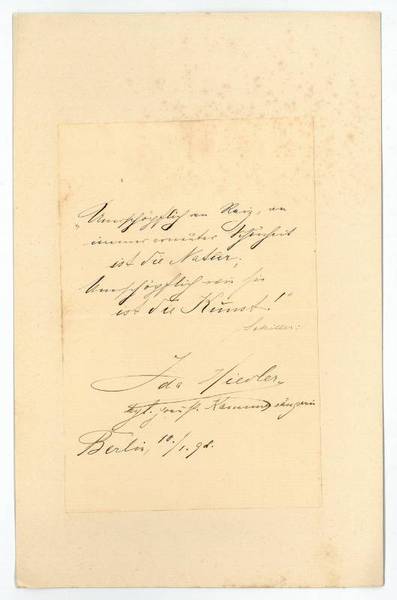 „Unerschöpflich an Reiz, an
immer erneuter Schönheit
ist die Natur;
Unerschöpflich wie sie
ist die Kunst!"
Schiller.
Ida Hiedler,
Kgl. preuß. Kammersängerin
Berlin, 10./1. 98.